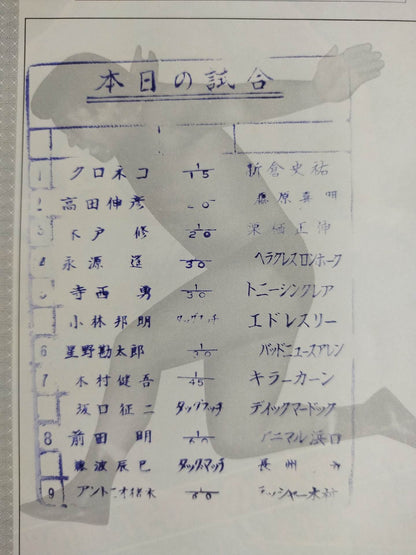 本日の試合
1 クロネコ 1/15 新倉史祐
2 高田伸彦 20 藤原喜明
3 木戸修 1/20 栗栖正伸
4 永源遥 1/30 ヘラクレスロンホーク
5 寺西勇 1/30 トニーシンクレア
小林邦明 タッグマッチ エドレスリー
6 星野勘太郎 1/30 バッドニュースアレン
7 木村健吾 1/45 キラーカーン
坂口征二 タッグマッチ ディックマードック
8 前田明 1/60 アニマル浜口
藤波辰巳 タッグマッチ 長州力
9 アントニオ猪木 1/60 ラッシャー木村